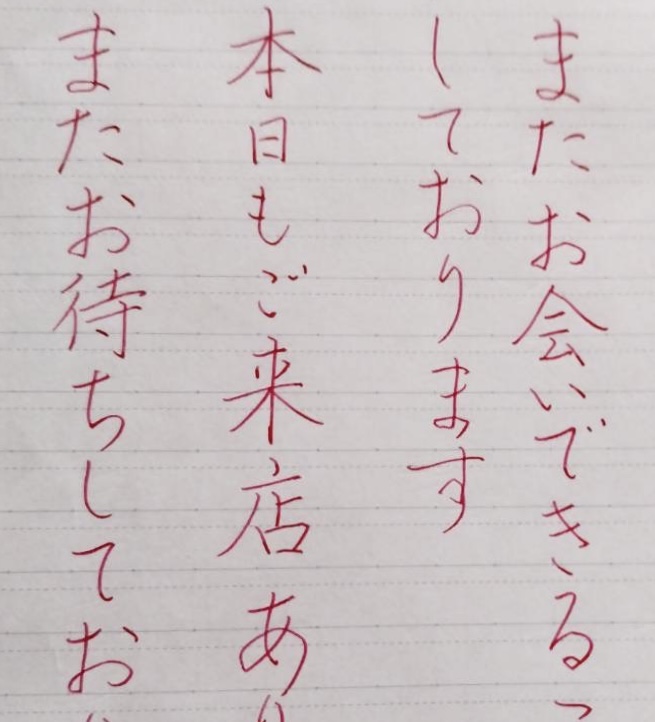 またお会いできるこ
しております
本日もご来店あり
またお待ちしており